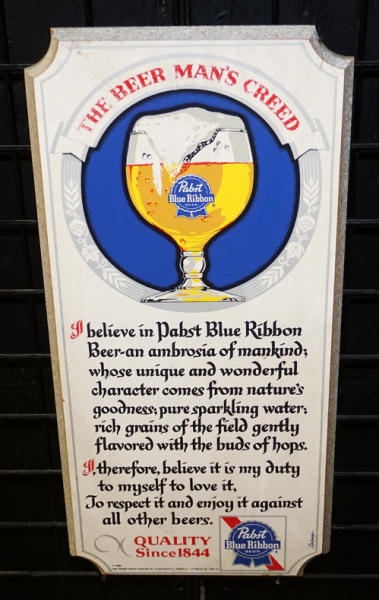 THE BEER MAN'S CREED
Pabst
Blue Ribbon
BEER
I believe in Pabst Blue Ribbon
Beer-an ambrosia of mankind;
whose unique and wonderful
character comes from nature's
goodness; pure sparkling water;
rich grains of the field gently
flavored with the buds of hops.
I, therefore, believe it is my duty
to myself to love it,
To respect it and enjoy it against
all other beers.
QUALITY
Since 1844
Pabst
Blue Ribbon
BEER